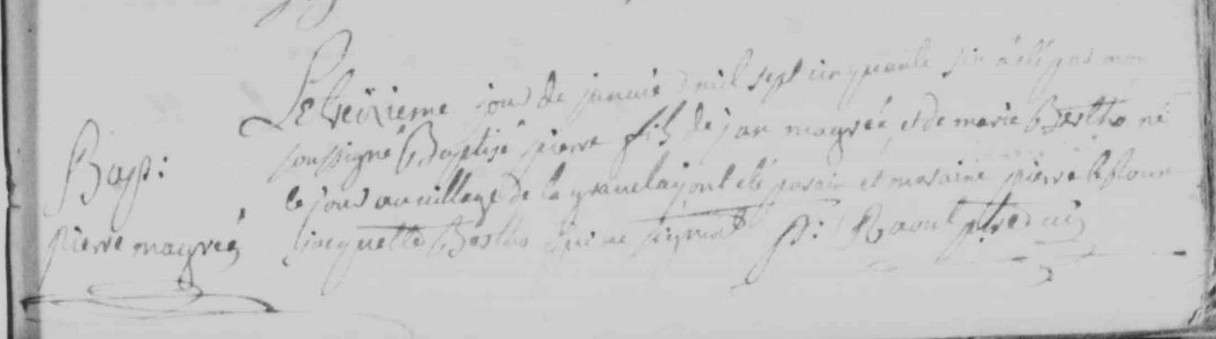 Bapt:
pierre magreé
Le treizieme jour de janvie mil sept cinquante six a été par moy
soussigné Baptisé pierre fils de jan magreé et de marie Bertho né
ce jour au village de la ont été parain et maraine pierre
jacquette Bertho qui ne signent P: Raoul